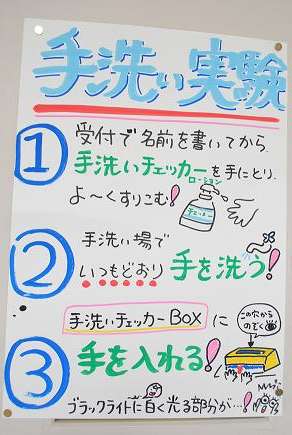 手洗い実験
① 受付で名前を書いてから、
手洗いチェッカーを手にとり、
ローション
よ〜くすりこむ!
② 手洗い場で
いつもどおり 手を洗う!
手洗いチェッカーBOXに
この穴からのぞく
③ 手を入れる!
ブラックライトに白く光る部分が…!